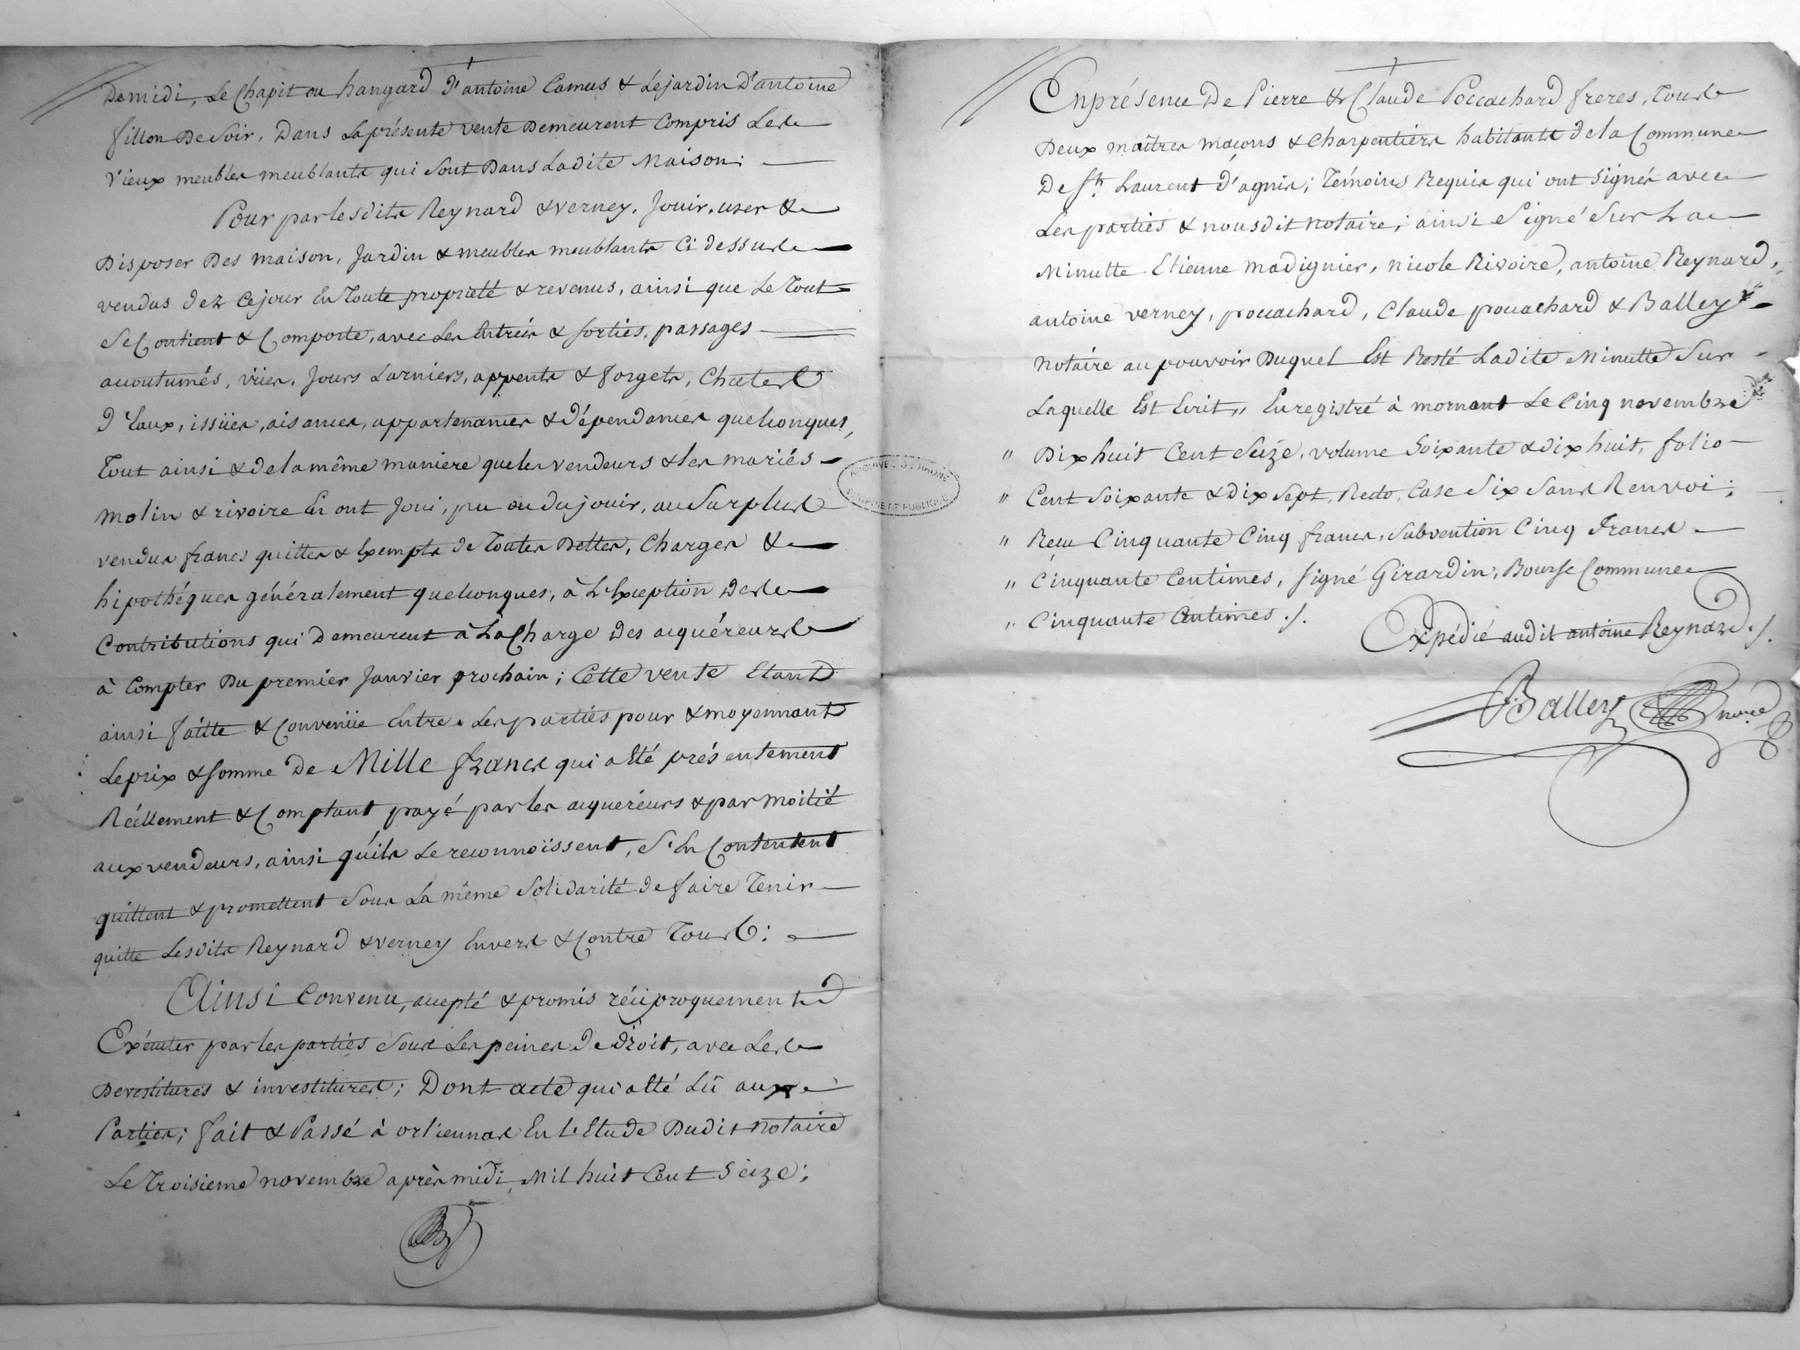 De midi, Le Chapit ou hangard d'antoine Camus & Le jardin D'antoine
fillon De Soir, Dans La présente vente Demeurent Compris Les
vieux meubles meublants qui Sont Dans Ladite Maison:
Pour par lesdits Reynard & verney, Jouir, user &
Disposer Des maison, Jardin & meubles meublants Ci dessus
vendus dez Ce jour En Toute propriété & revenus, ainsi que Le Tout
Se Contient & Comporte, avec Les Entrées & Sorties, passages
acoutumés, vües, Jours Larmiers, appents & forgets, Chutes
D'Eaux, issües, aisances, appartenances & dépendances quelconques,
Tout ainsi & de la même maniere que les vendeurs & les mariés
molin & rivoire En ont Joui, pu ou du jouir, au Surplus
vendus francs quittes & Exempts de Toutes Dettes, Charges &
hipothéques généralement quelconques, à L'Exception Des
Contributions qui Demeurent à La Charge des acquéreurs
à Compter Du premier Janvier prochain; Cette vente Etant
ainsi faitte & Convenüe Entre Les parties pour & moyennant
Le prix & Somme De Mille francs qui a Eté présentement
Réellement & Comptant payé par les acquéreurs & par moitié
aux vendeurs, ainsi qu'ils Le reconnoissent, S'En Contentent
quittent & promettent Sous La même Solidarité de faire Tenir
quitte Lesdits Reynard & verney Envers & Contre Tous:
Ainsi Convenu, accepté & promis réciproquement
Exécuter par les parties Sous Les peines de droit, avec Les
Devestitures & investitures; Dont acte qui a Eté Lû aux
Parties; fait & Passé à orlienas En L'Etude Dudit notaire
Le Troisieme novembre après midi, Mil huit Cent Seize;
En présence De Pierre & Claude Poccachard freres, Tous
Deux maîtres maçons & Charpentiers habitants de la Commune
De St Laurent d'agnis; Témoins Requis qui ont Signés avec
Les parties & nousdit notaire; ainsi Signé Sur La
Minutte Etienne madignier, nicole Rivoire, antoine Reynard,
antoine verney, pocachard, Claude pocachard & Balley
notaire au pouvoir Duquel Est Resté Ladite Minutte Sur
Laquelle Est Ecrit,, Enregistré à mornant Le Cinq novembre
" Dix huit Cent Seize, volume Soixante & dix huit, folio
" Cent Soixante & Dix Sept, Recto, Case Six Sans Renvoi;
" Recu Cinquante Cinq francs, Subvention Cinq Francs
" Cinquante Centimes, Signé Girardin; Bourse Commune
" Cinquante Centimes ./.
Expédié audit antoine Reynard ./.
Balley nore
ARCHIVES DU RHÔNE
PROPRIÉTÉ PUBLIQUE